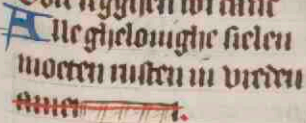 Alle ghelouighe sielen
moeten rusten in vreden
amen